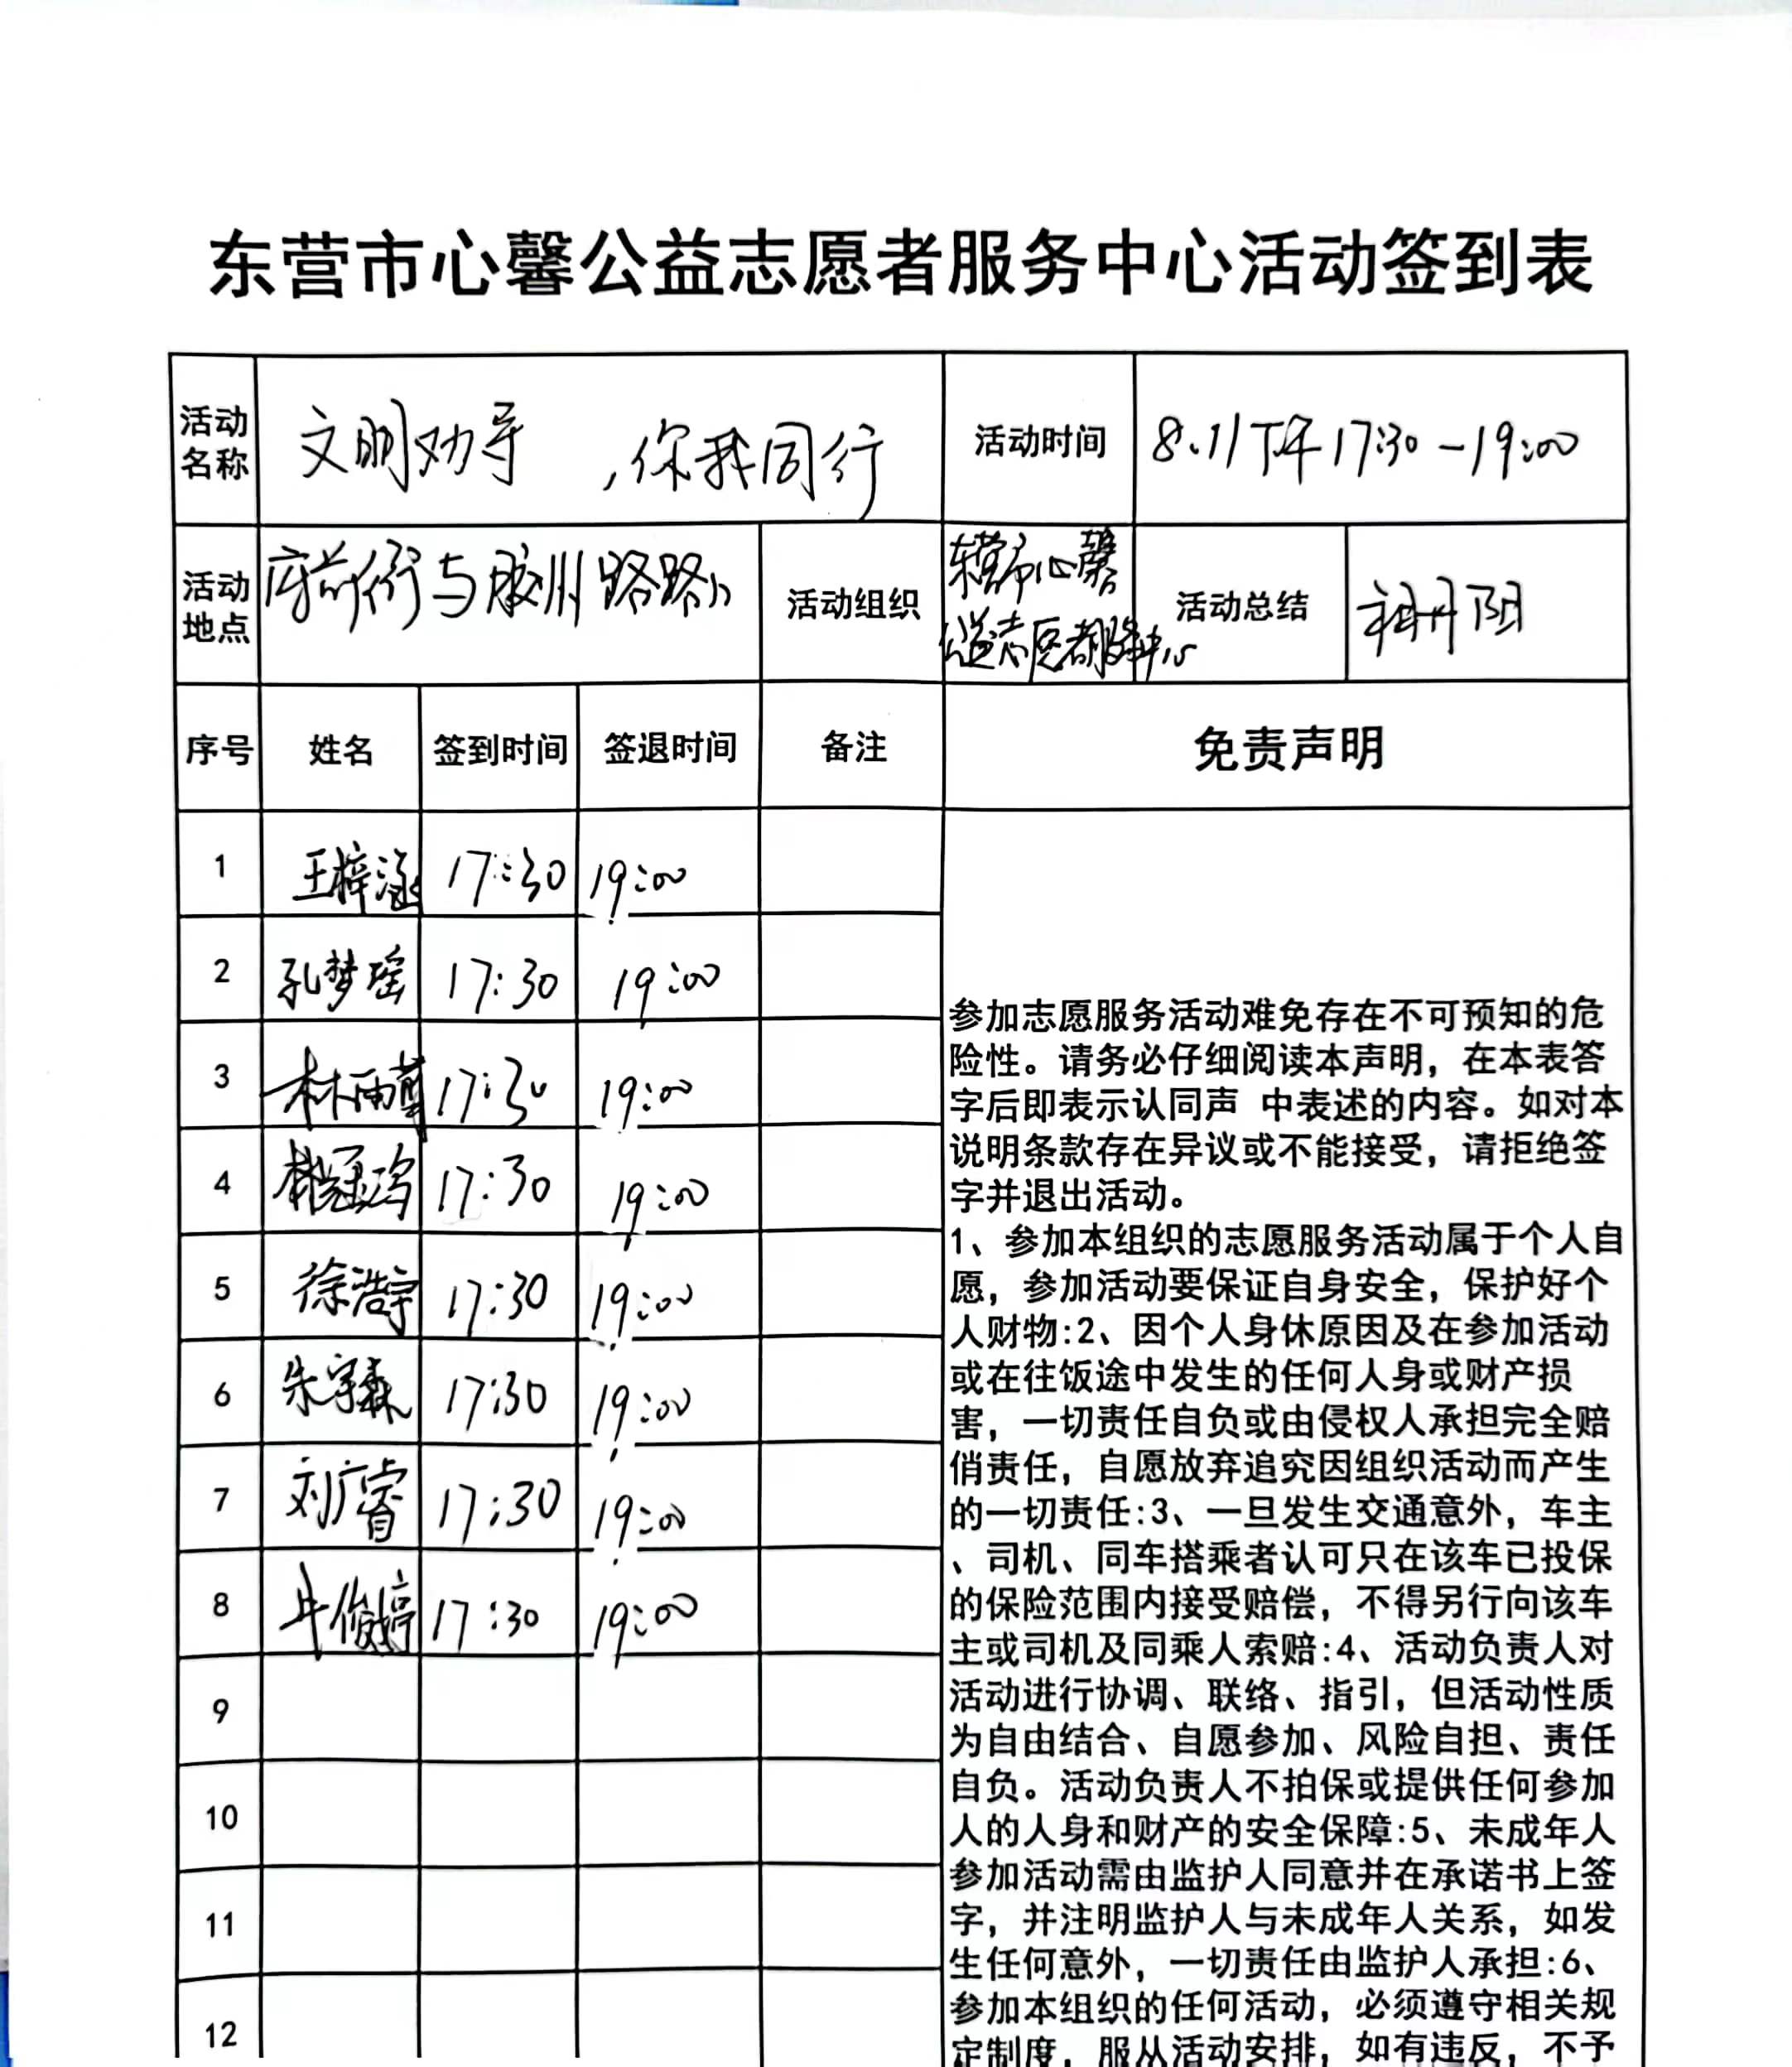 东营市心馨公益志愿者服务中心活动签到表
活动名称 文明劝导,你我同行 活动时间 8.11下午17:30-19:00
活动地点 府前街与胶州路路口 活动组织 东营市心馨公益志愿者服务中心 活动总结 祖丹阳
序号 姓名 签到时间 签退时间 备注 免责声明
1 王梓涵 17:30 19:00
2 孔梦瑶 17:30 19:00
3 林雨萱 17:30 19:00
4 17:30 19:00
5 徐浩宇 17:30 19:00
6 朱宇森 17:30 19:00
7 刘广睿 17:30 19:00
8 牛俊婷 17:30 19:00
9
10
11
12
参加志愿服务活动难免存在不可预知的危
险性。请务必仔细阅读本声明，在本表答
字后即表示认同声 中表述的内容。如对本
说明条款存在异议或不能接受，请拒绝签
字并退出活动。
1、参加本组织的志愿服务活动属于个人自
愿，参加活动要保证自身安全，保护好个
人财物:2、因个人身休原因及在参加活动
或在往饭途中发生的任何人身或财产损
害，一切责任自负或由侵权人承担完全赔
俏责任，自愿放弃追究因组织活动而产生
的一切责任:3、一旦发生交通意外，车主
、司机、同车搭乘者认可只在该车已投保
的保险范围内接受赔偿，不得另行向该车
主或司机及同乘人索赔:4、活动负责人对
活动进行协调、联络、指引，但活动性质
为自由结合、自愿参加、风险自担、责任
自负。活动负责人不拍保或提供任何参加
人的人身和财产的安全保障:5、未成年人
参加活动需由监护人同意并在承诺书上签
字，并注明监护人与未成年人关系，如发
生任何意外，一切责任由监护人承担:6、
参加本组织的任何活动，必须遵守相关规
定制度，服从活动安排，如有违反，不予